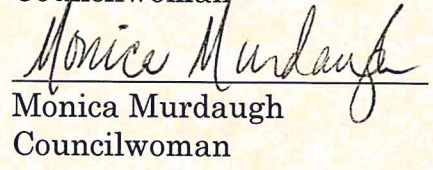 Councilwoman
Monica Murdaugh
Monica Murdaugh
Councilwoman